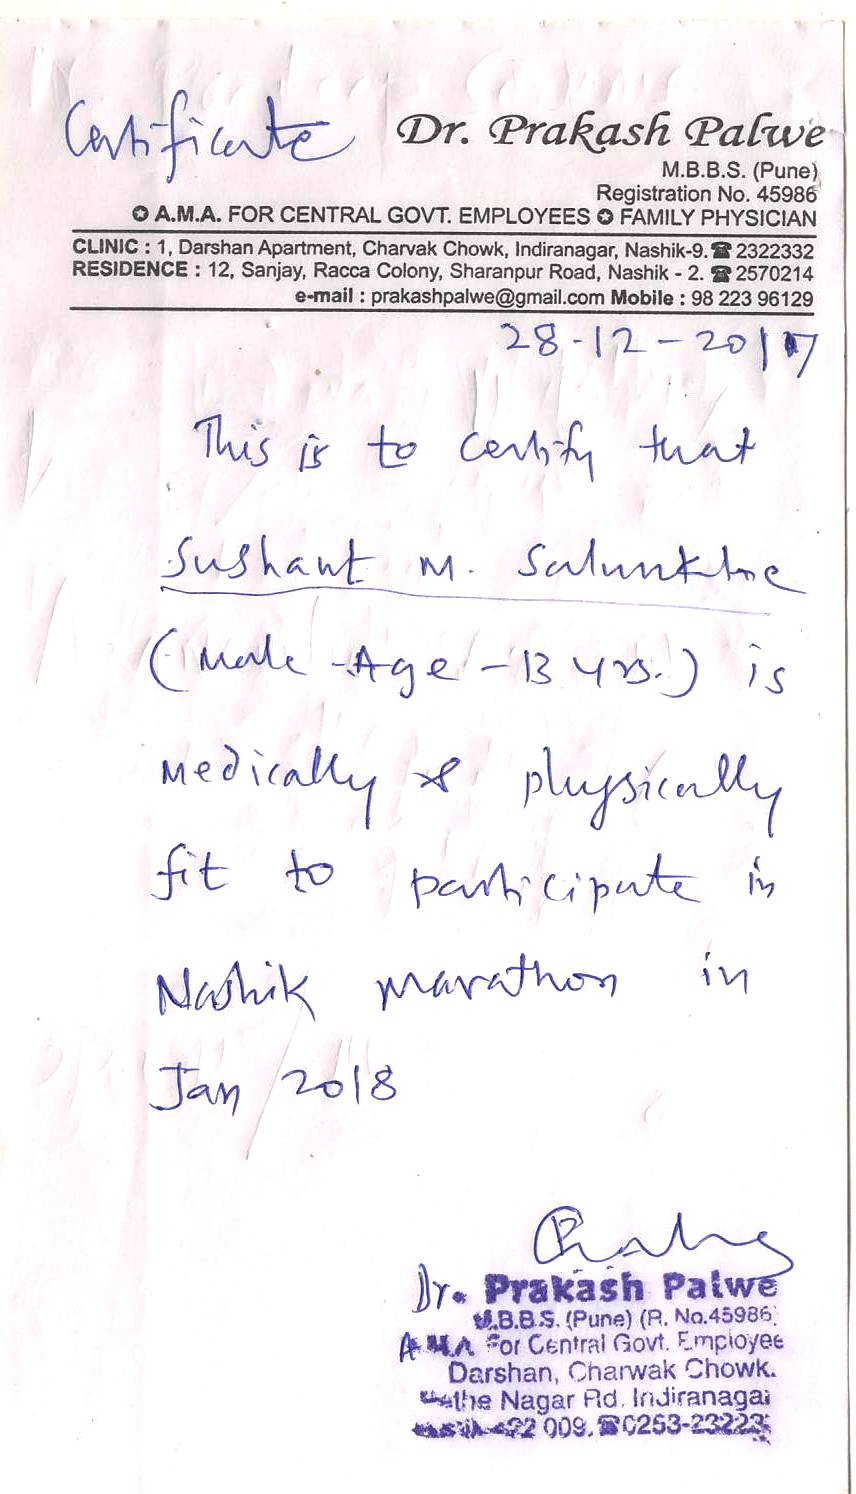 Certificate
Dr. Prakash Palwe
M.B.B.S. (Pune)
Registration No. 45986
✪ A.M.A. FOR CENTRAL GOVT. EMPLOYEES ✪ FAMILY PHYSICIAN
CLINIC : 1, Darshan Apartment, Charvak Chowk, Indiranagar, Nashik-9. ☎ 2322332
RESIDENCE : 12, Sanjay, Racca Colony, Sharanpur Road, Nashik - 2. ☎ 2570214
e-mail : prakashpalwe@gmail.com Mobile : 98 223 96129
28-12-2017
This is to certify that
Sushant M. Salunkhe
(Male - Age - 13 yrs.) is
Medically & physically
fit to participate in
Nashik marathon in
Jan 2018
Dr. Prakash Palwe
M.B.B.S. (Pune) (R. No.45986)
A.M.A For Central Govt. Employee
Darshan, Charwak Chowk.
Nagar Rd. Indiranagar
009. ☎ 0253-23223